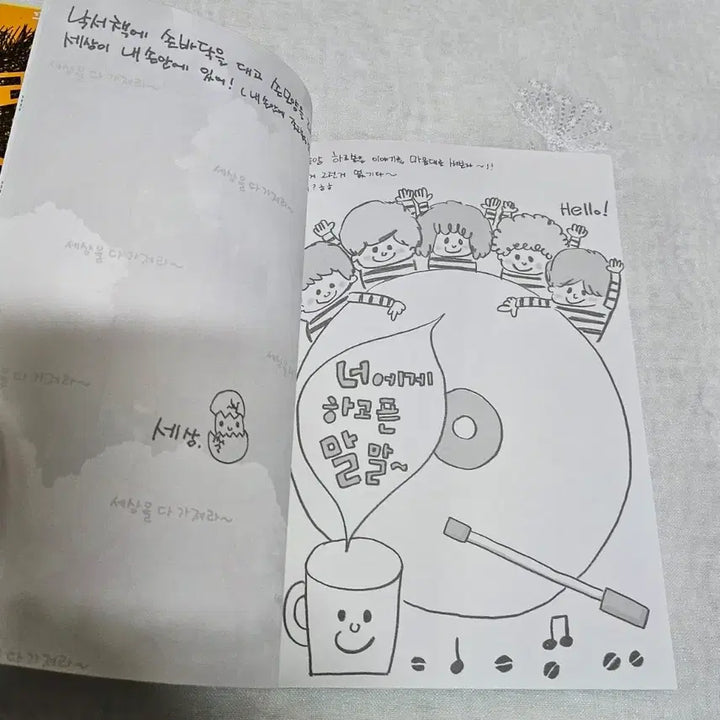 낙서책에 손바닥을 대고 손모양을
세상이 내 손안에 있어! (내 손안에
세상을 다 가져라~
세상을 다 가져라~
세상을 다 가져라~
다 가져라~
세상.
세상을 다 가져라~
다 가져라~
하고픈 이야기를 마음대로 해보자~!!
Hello!
너에게
하고픈
말 말~